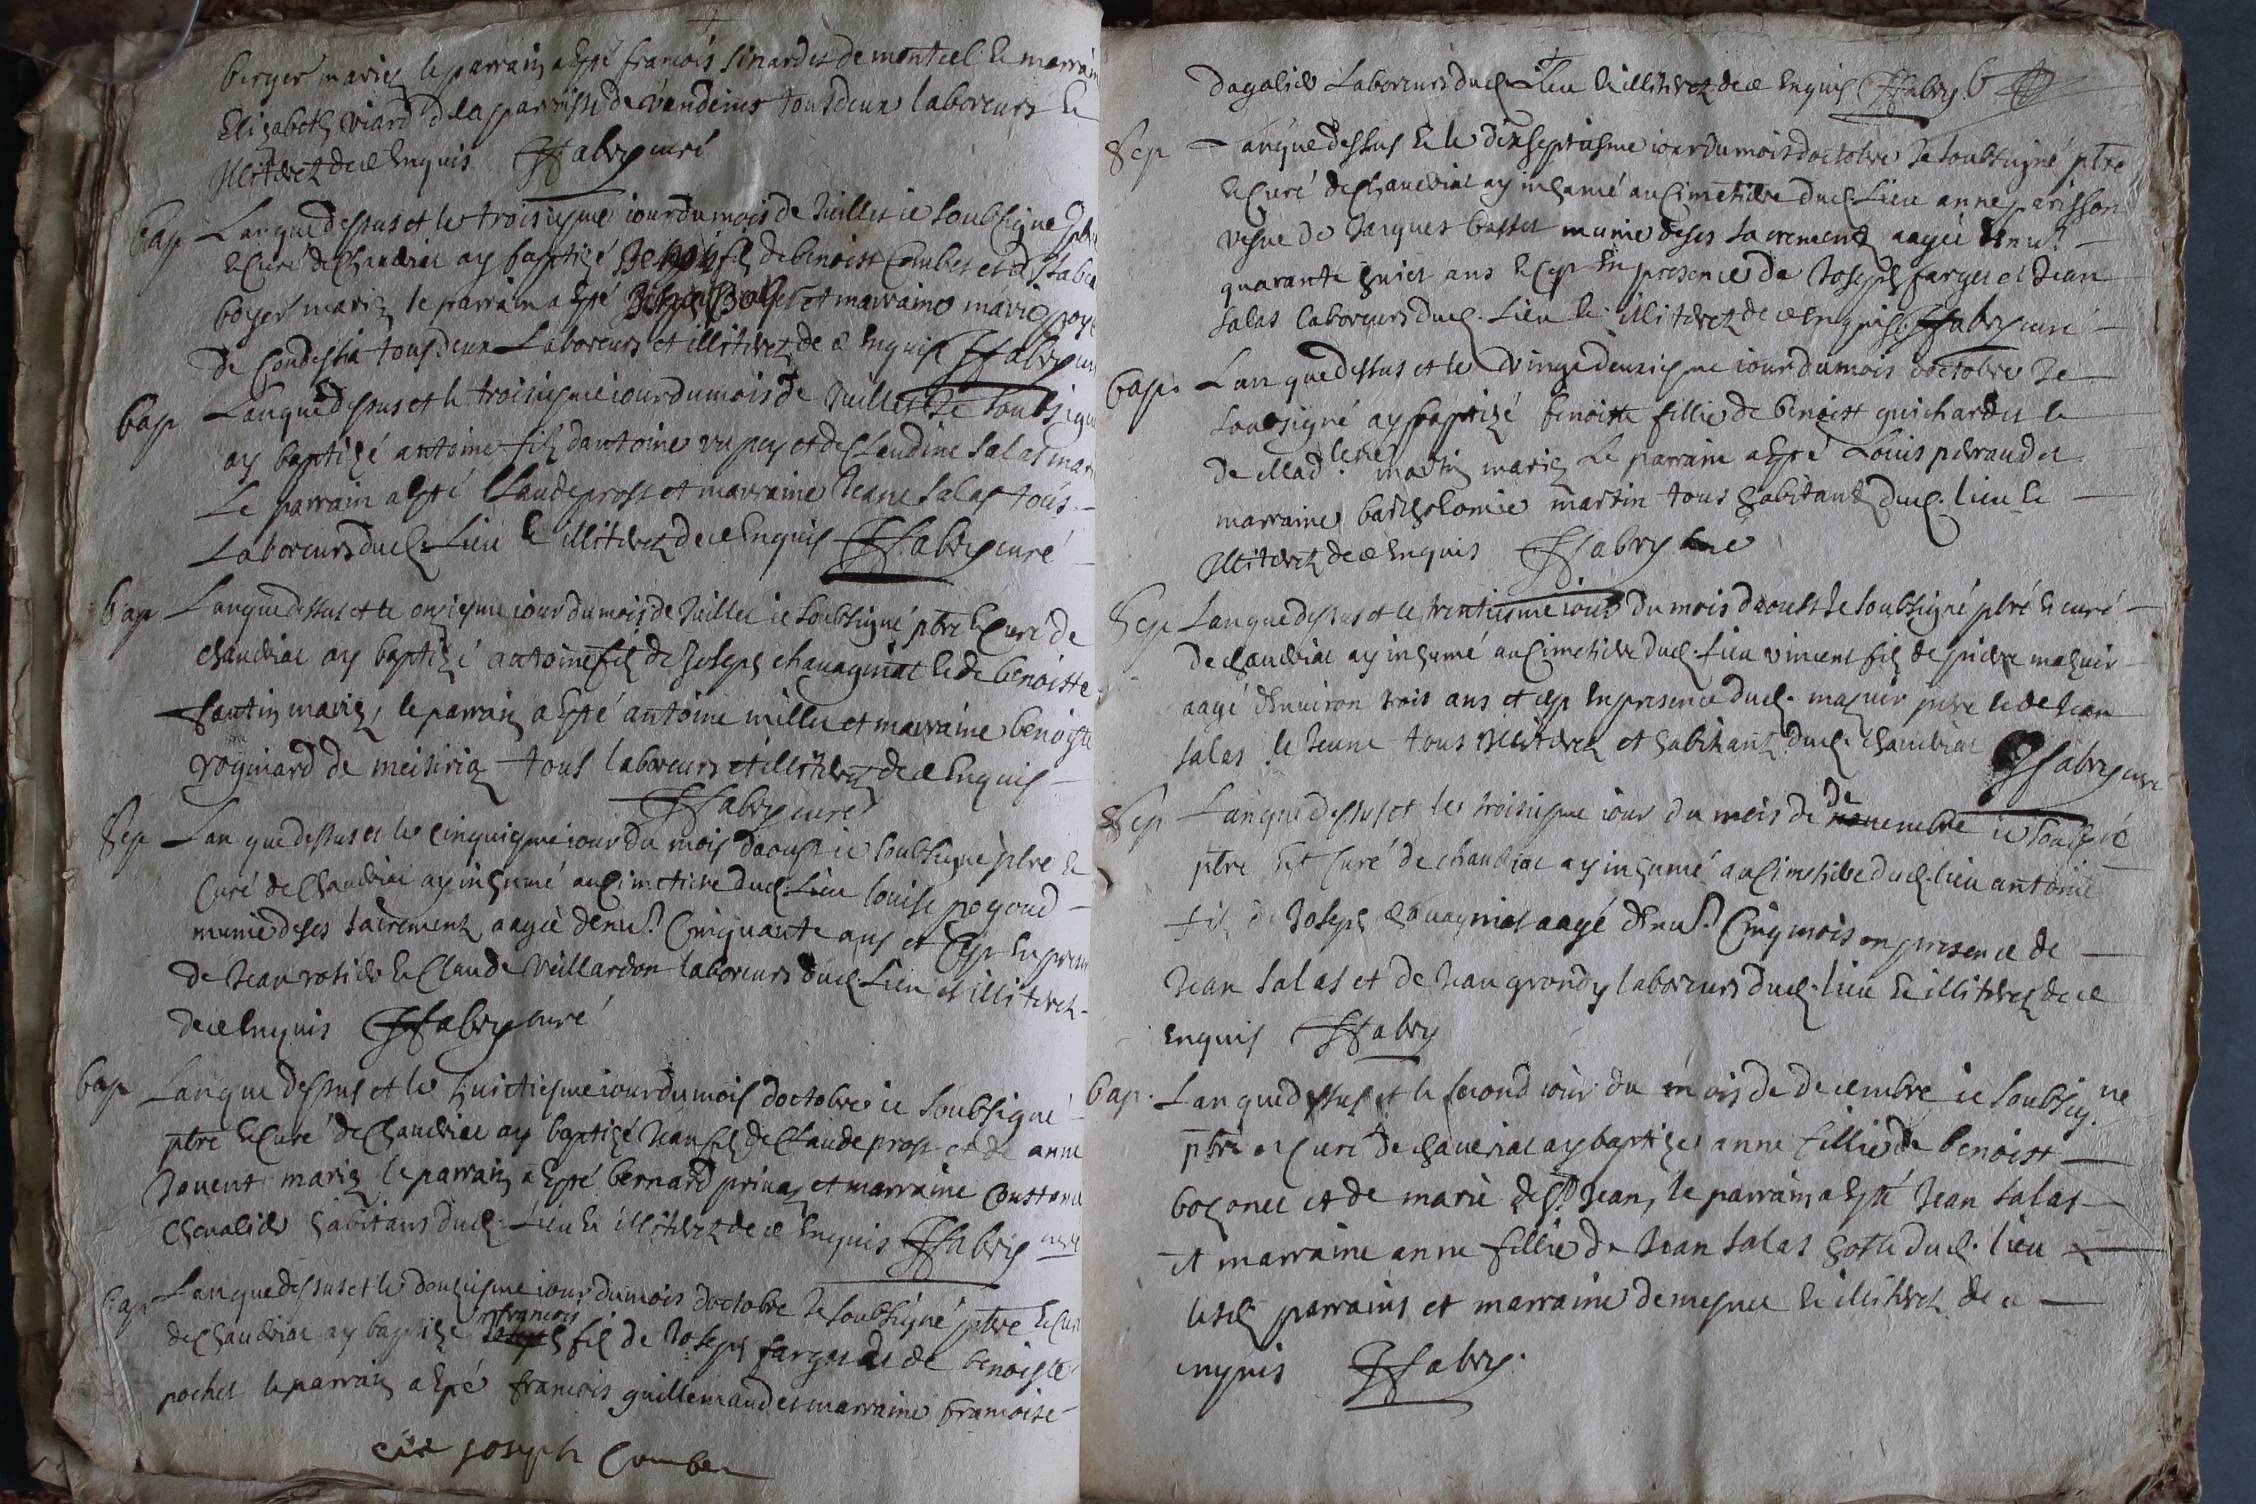 berger mariez le parrain a esté francois sinardet de montcel et marraine
Elizabeth viard de la parroisse de vandeins tous deux laboreurs et
illiterez de ce enquis Ffabry curé
bap Lan que dessus et le troisiesme iour du mois de Juillet ie soubsigné ptre
et curé de Chaveiriac ay baptizé filz de benoist Combet et d'
boyer mariez le parrain a esté et marraine marie
de Condessia tous deux Laboreurs et illiterez de ce enquis Ffabry cur
bap Lan que dessus et le troisiesme iour du mois de Juillet Je soubsigné
ay baptizé antoine filz dantoine vupey et de Claudine salas mari
Le parrain a esté Claude prost et marraine Jeane salas tous
Laboreurs dud. Lieu et illiterez de ce enquis Ffabry curé
bap Lan que dessus et le onziesme iour du mois de Juillet ie soubsigné ptre et Curé de
chaveiriac ay baptizé antoine filz de Joseph chavagniat et de benoiste
mariez, le parrain a esté antoine millet et marraine benoiste
roginard de meisiria tous laboreurs et illiterez de ce enquis
Ffabry curé
Sep Lan que dessus et le cinquiesme iour du mois daoust ie soubsigné ptre et
Curé de Chaveiriac ay inhumé au Cimetiere dud. Lieu louise pogoud
munie de ses sacrementz aagée denv. Cinquante ans et ce en presen
de Jean rotier et Claude Veillardon laboreurs dud. Lieu et illiterez
de ce enquis Ffabry curé
bap Lan que dessus et le huictiesme iour du mois doctobre ie soubsigné
ptre et Curé de Chaveiriac ay baptizé Jean filz de Claude prost et de anne
Jouent mariez le parrain a esté bernard privaz et marraine Constance
Chevalier habitans dud. Lieu et illiterez de ce enquis Ffabry curé
bap Lan que dessus et le douziesme iour du mois doctobre Je soubsigné ptre et Curé
de Chaveiriac ay baptizé francois filz de Joseph farges et de benoiste
pochet le parrain a esté francois guillemaud et marraine francoise
Joseph Combe
dagalier Laboreurs dud. Lieu et illiterez de ce enquis Ffabry
Sep Lan que dessus et le dixseptiesme iour du mois doctobre Je soubsigné ptre
et Curé de Chaveiriac ay inhumé au Cimetiere dud. Lieu anne parisson
vefve de Jacques basset munie de ses sacrementz aagée denv.
quarante huict ans et ce en presence de Joseph farges et Jean
salas laboreurs dud. Lieu et illiterez de ce enquis Ffabry curé
bap. Lan que dessus et le vingt deuxiesme iour du mois doctobre Je
soubsigné ay baptizé benoiste fillie de benoist guichardet et
de Madlene martin mariez Le parrain a esté Louis peraud et
marraine bartholomie martin tous habitantz dud. lieu et
Illiterez de ce enquis Ffabry curé
Sep Lan que dessus et le trentiesme iour du mois daoust Je soubsigné ptre et curé
de Chaveiriac ay inhumé au Cimetiere dud. Lieu vincent filz de pierre mahuir
aagé denviron trois ans et ce en presence dud. mahuir pere et de Jean
salas le Jeune tous illiterez et habitantz dud. chaveiriac Ffabry curé
Sep Lan que dessus et le troisiesme iour du mois de decembre ie soubsigné
ptre et Curé de chaveiriac ay inhumé au Cimetiere dud. lieu antoine
filz de Joseph chavagniat aagé denv. Cinq mois en presence de
Jean salas et de Jean grondy laboreurs dud. lieu et illiterez de ce
enquis Ffabry
bap. Lan que dessus et le second iour du mois de decembre ie soubsigné
ptre et Curé de chaveiriac ay baptizé anne fillie de benoist
bozonet et de marie de st Jean, le parrain a esté Jean salas
et marraine anne fillie de Jean salas hoste dud. lieu
lesd. parrains et marraine demesmes et illiterez de ce
enquis Ffabry.